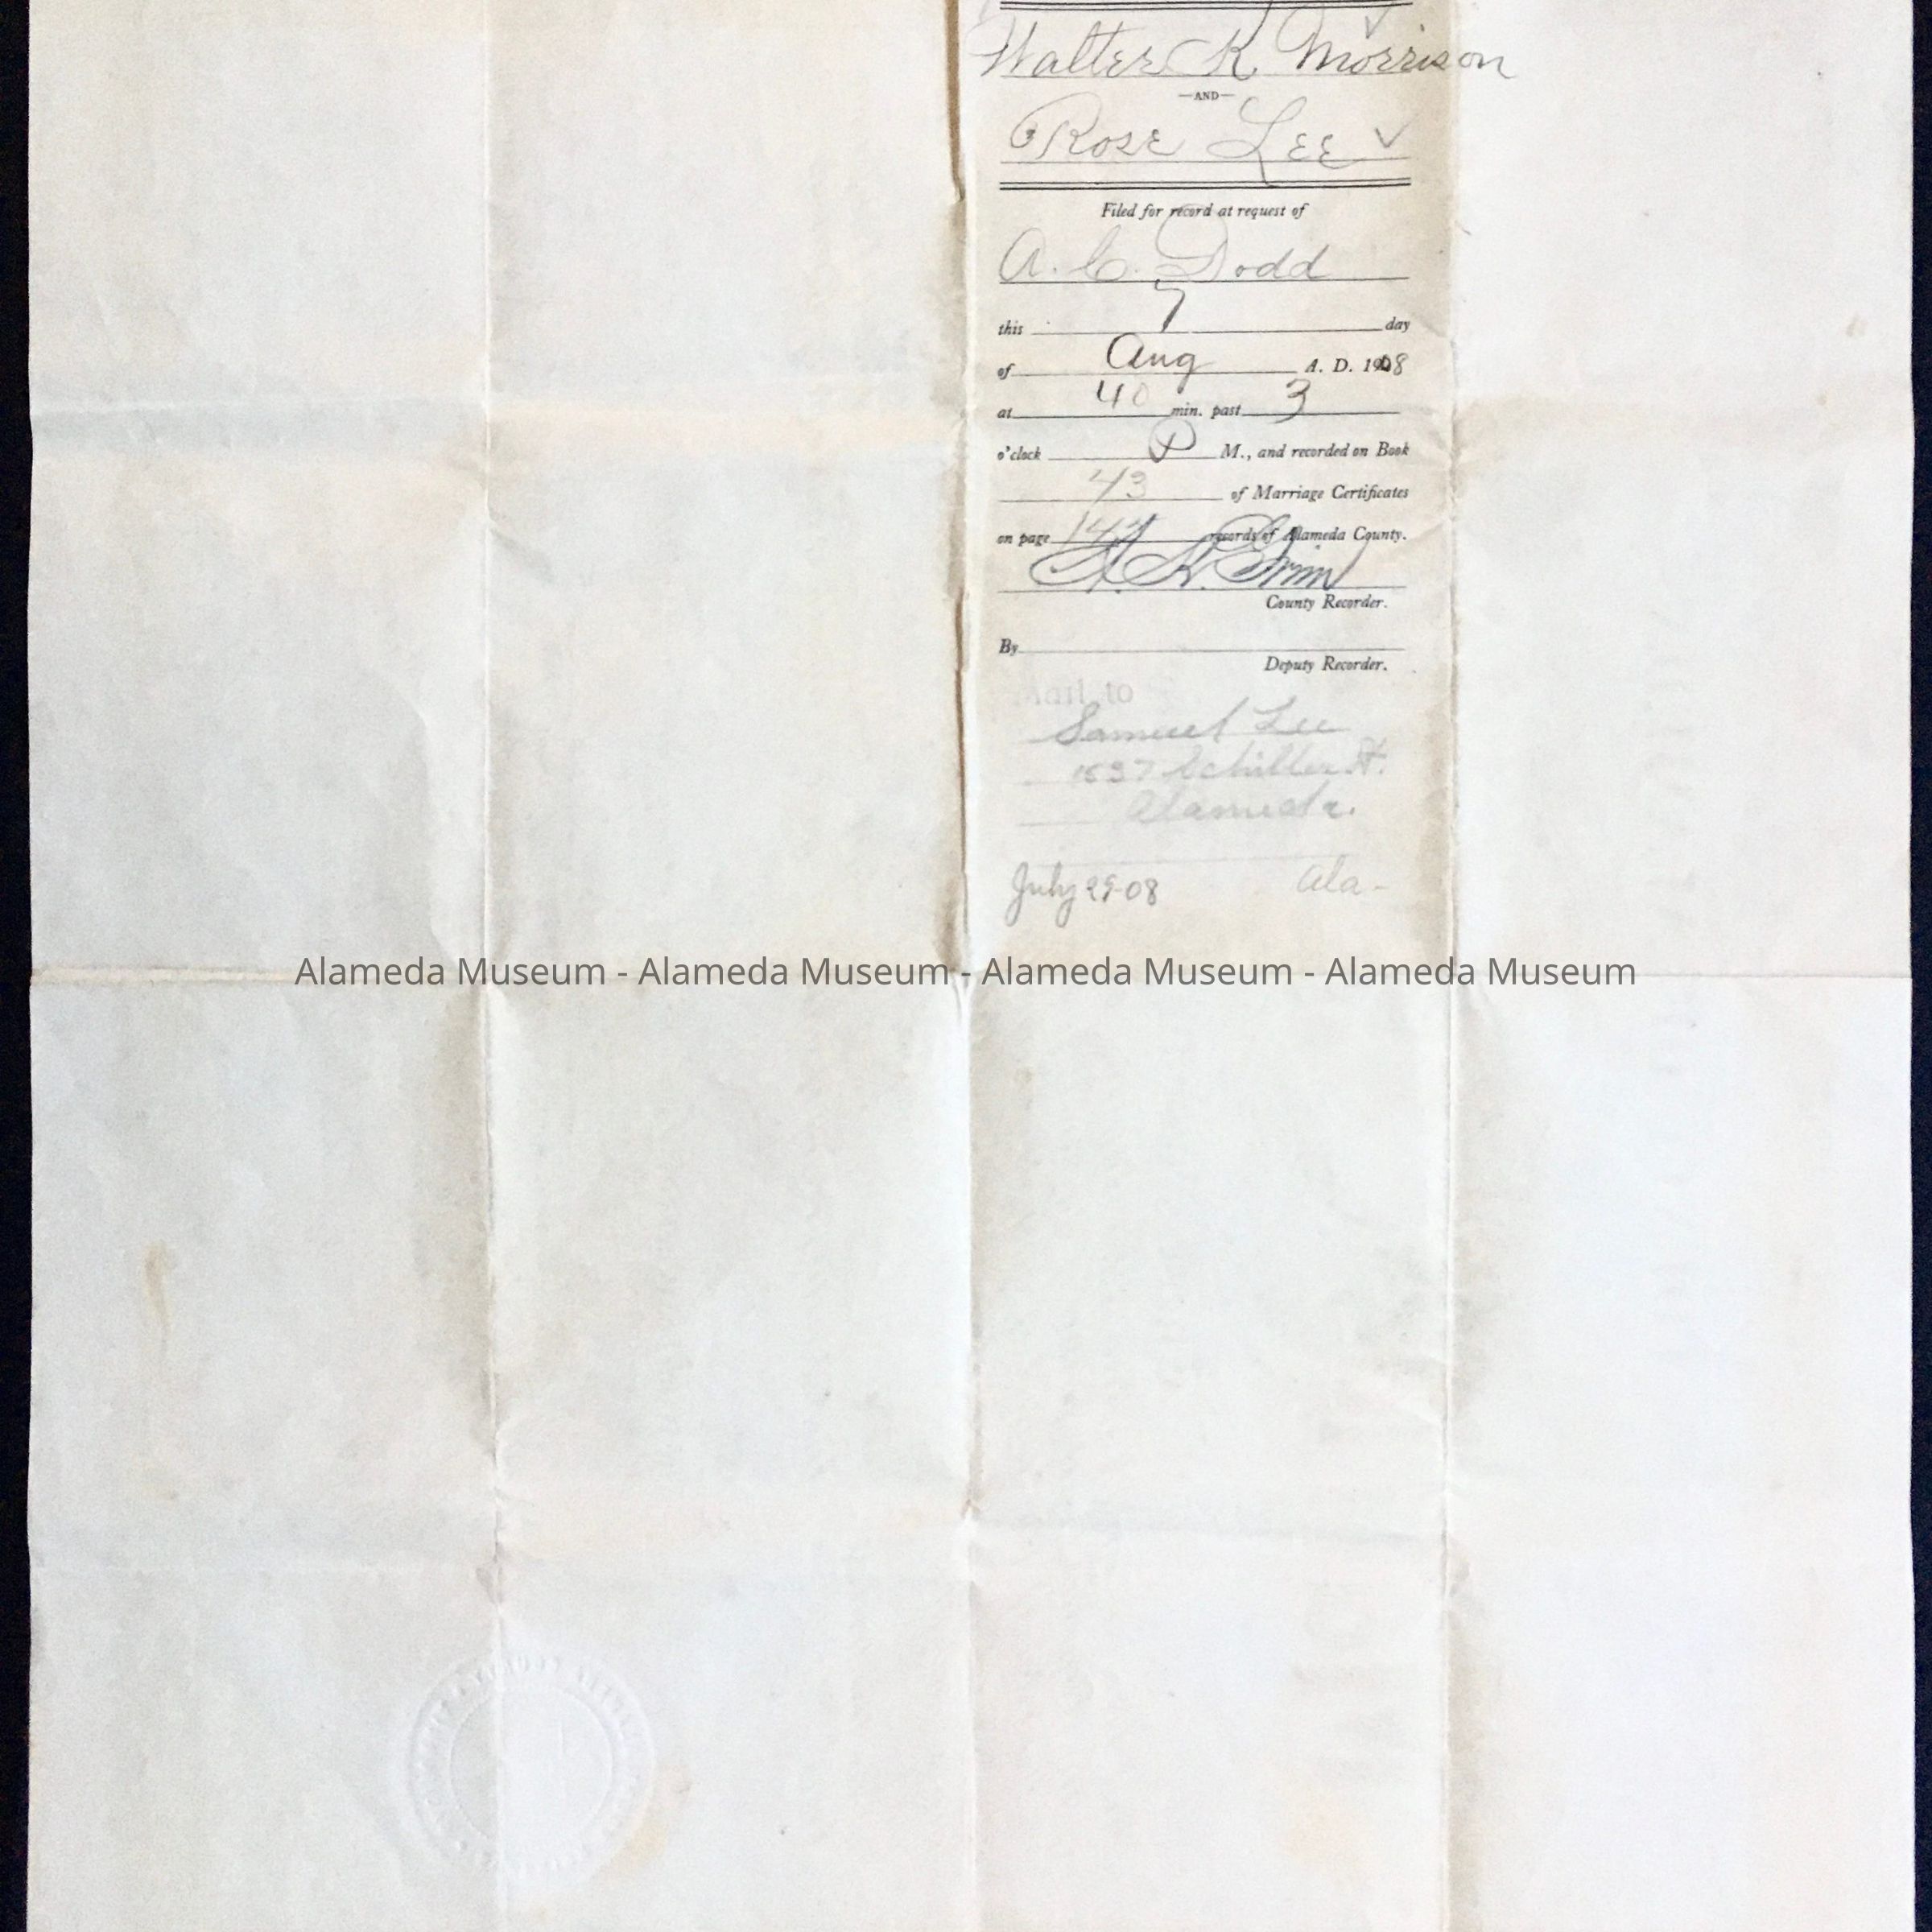 Walter K. Morrison
—AND—
Rose Lee
Filed for record at request of
A. C. Dodd
this 7 day
of Aug A. D. 1908
at 40 min. past 3
o'clock P M., and recorded on Book
43 of Marriage Certificates
on page records of Alameda County.
County Recorder.
By
Deputy Recorder.
Mail to
Samuel Lee
Schiller St.
Alameda.
July 29-08 Ala-
Alameda Museum - Alameda Museum - Alameda Museum - Alameda Museum